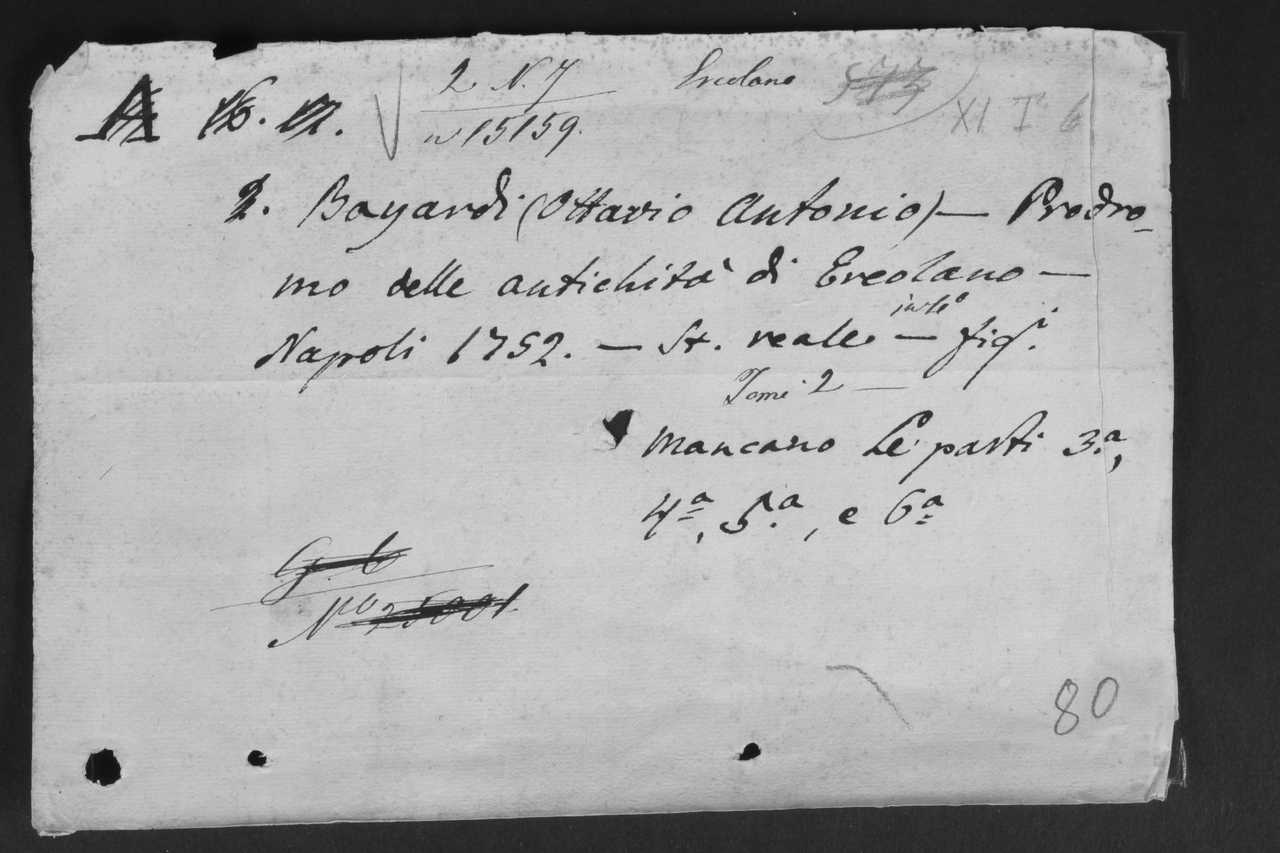 2 N. 7 Ercolano
XI T 6
n 15159.
2. Bayardi (Ottavio Antonio) — Prodro-
mo delle antichità di Ercolano —
Napoli 1752. — St. reale — fig.i
Tomi 2 —
mancano le parti 3.a,
4a, 5.a, e 6a
No 25001.
80